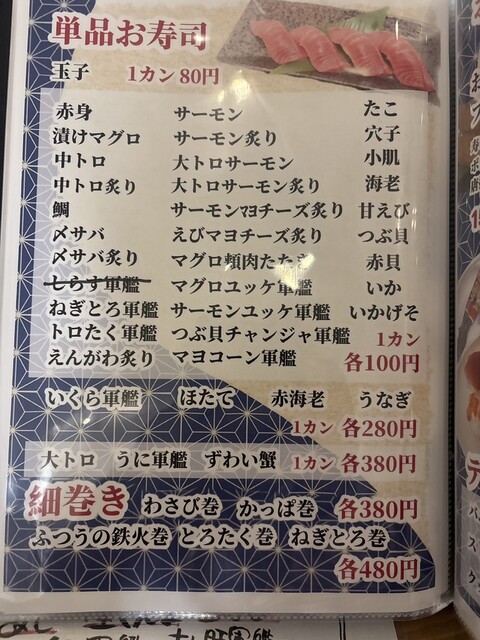 単品お寿司
玉子 1カン 80円
赤身 サーモン たこ
漬けマグロ サーモン炙り 穴子
中トロ 大トロサーモン 小肌
中トロ炙り 大トロサーモン炙り 海老
鯛 サーモンマヨチーズ炙り 甘えび
〆サバ えびマヨチーズ炙り つぶ貝
〆サバ炙り マグロ頬肉たたき 赤貝
しらす軍艦 マグロユッケ軍艦 いか
ねぎとろ軍艦 サーモンユッケ軍艦 いかげそ
トロたく軍艦 つぶ貝チャンジャ軍艦 1カン
えんがわ炙り マヨコーン軍艦 各100円
いくら軍艦 ほたて 赤海老 うなぎ
1カン 各280円
大トロ うに軍艦 ずわい蟹 1カン 各380円
細巻き わさび巻 かっぱ巻 各380円
ふつうの鉄火巻 とろたく巻 ねぎとろ巻
各480円